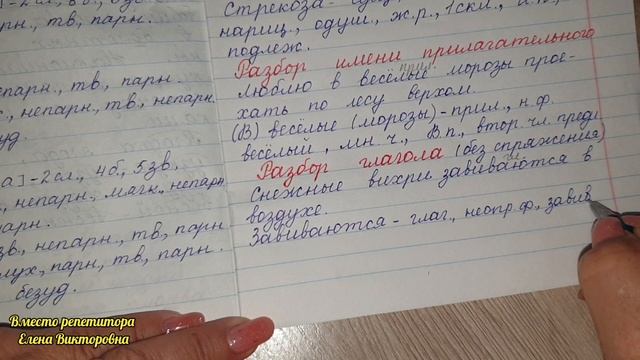 ]-2сл., 6б.,
парн., тв., парн.
непарн., тв., парн.
., непарн., тв., непарн.
]-2сл., 4б, 5зв.
, непарн., мягк., непарн.
парн.
зв., непарн., тв., парн.
глух., парн., тв., парн.
безуд.
Стрекоза
нариц., одуш., ж.р., 1скл.,
подлеж.
Разбор имени прилагательного
прил.
Люблю в весёлые морозы прое-
хать по лесу верхом.
(В) весёлые (морозы)-прил., н.ф.
весёлый, мн.ч., В.п., втор. чл. предл.
Разбор глагола (без спряжения)
Снежные вихри завиваются в
воздухе.
Завиваются - глаг., неопр.ф., завив
Вместо репетитора
Елена Викторовна